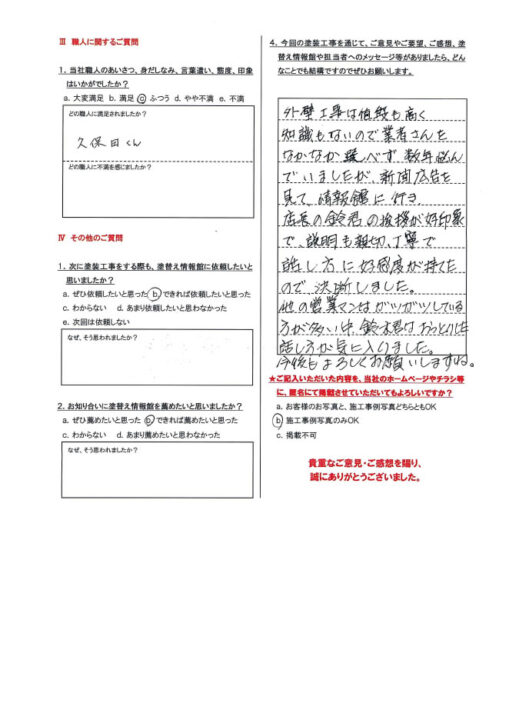 Ⅲ 職人に関するご質問
1. 当社職人のあいさつ、身だしなみ、言葉遣い、態度、印象
はいかがでしたか？
a. 大変満足 b. 満足 c ふつう d. やや不満 e. 不満
どの職人に満足されましたか？
久保田くん
どの職人に不満を感じましたか？
Ⅳ その他のご質問
1. 次に塗装工事をする際も、塗替え情報館に依頼したいと
思いましたか？
a. ぜひ依頼したいと思った b できれば依頼したいと思った
c. わからない d. あまり依頼したいと思わなかった
e. 次回は依頼しない
なぜ、そう思われましたか？
2. お知り合いに塗替え情報館を薦めたいと思いましたか？
a. ぜひ薦めたいと思った b できれば薦めたいと思った
c. わからない d. あまり薦めたいと思わなかった
なぜ、そう思われましたか？
4. 今回の塗装工事を通じて、ご意見やご要望、ご感想、塗
替え情報館や担当者へのメッセージ等がありましたら、どん
なことでも結構ですのでぜひお願いします。
外壁工事は値段も高く
知識もないので業者さんを
なかなか選べず 数年悩ん
でいましたが、新聞広告を
見て、情報館に行き
店長の鈴君の挨拶が好印象
で、説明も親切、丁寧で
話し方に好感度が持てた
ので決断しました。
他の営業マンはガツガツしている
方が多い中 鈴木君はおっとりした
話し方が気に入りました。
今後もよろしくお願いしますね。
★ご記入いただいた内容を、当社のホームページやチラシ等
に、匿名にて掲載させていただいてもよろしいですか？
a. お客様のお写真と、施工事例写真どちらともOK
b 施工事例写真のみOK
c. 掲載不可
貴重なご意見・ご感想を賜り、
誠にありがとうございました。